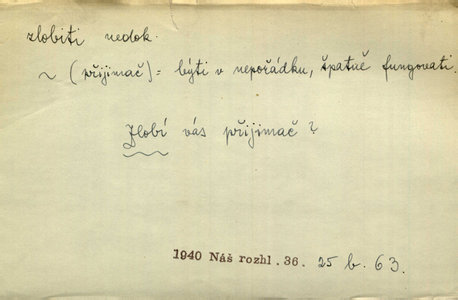 zlobiti nedok.
~ (přijimač) = býti v nepořádku, špatně fungovati.
Zlobí vás přijimač?
1940 Náš rozhl. 36. 25 b. 63.